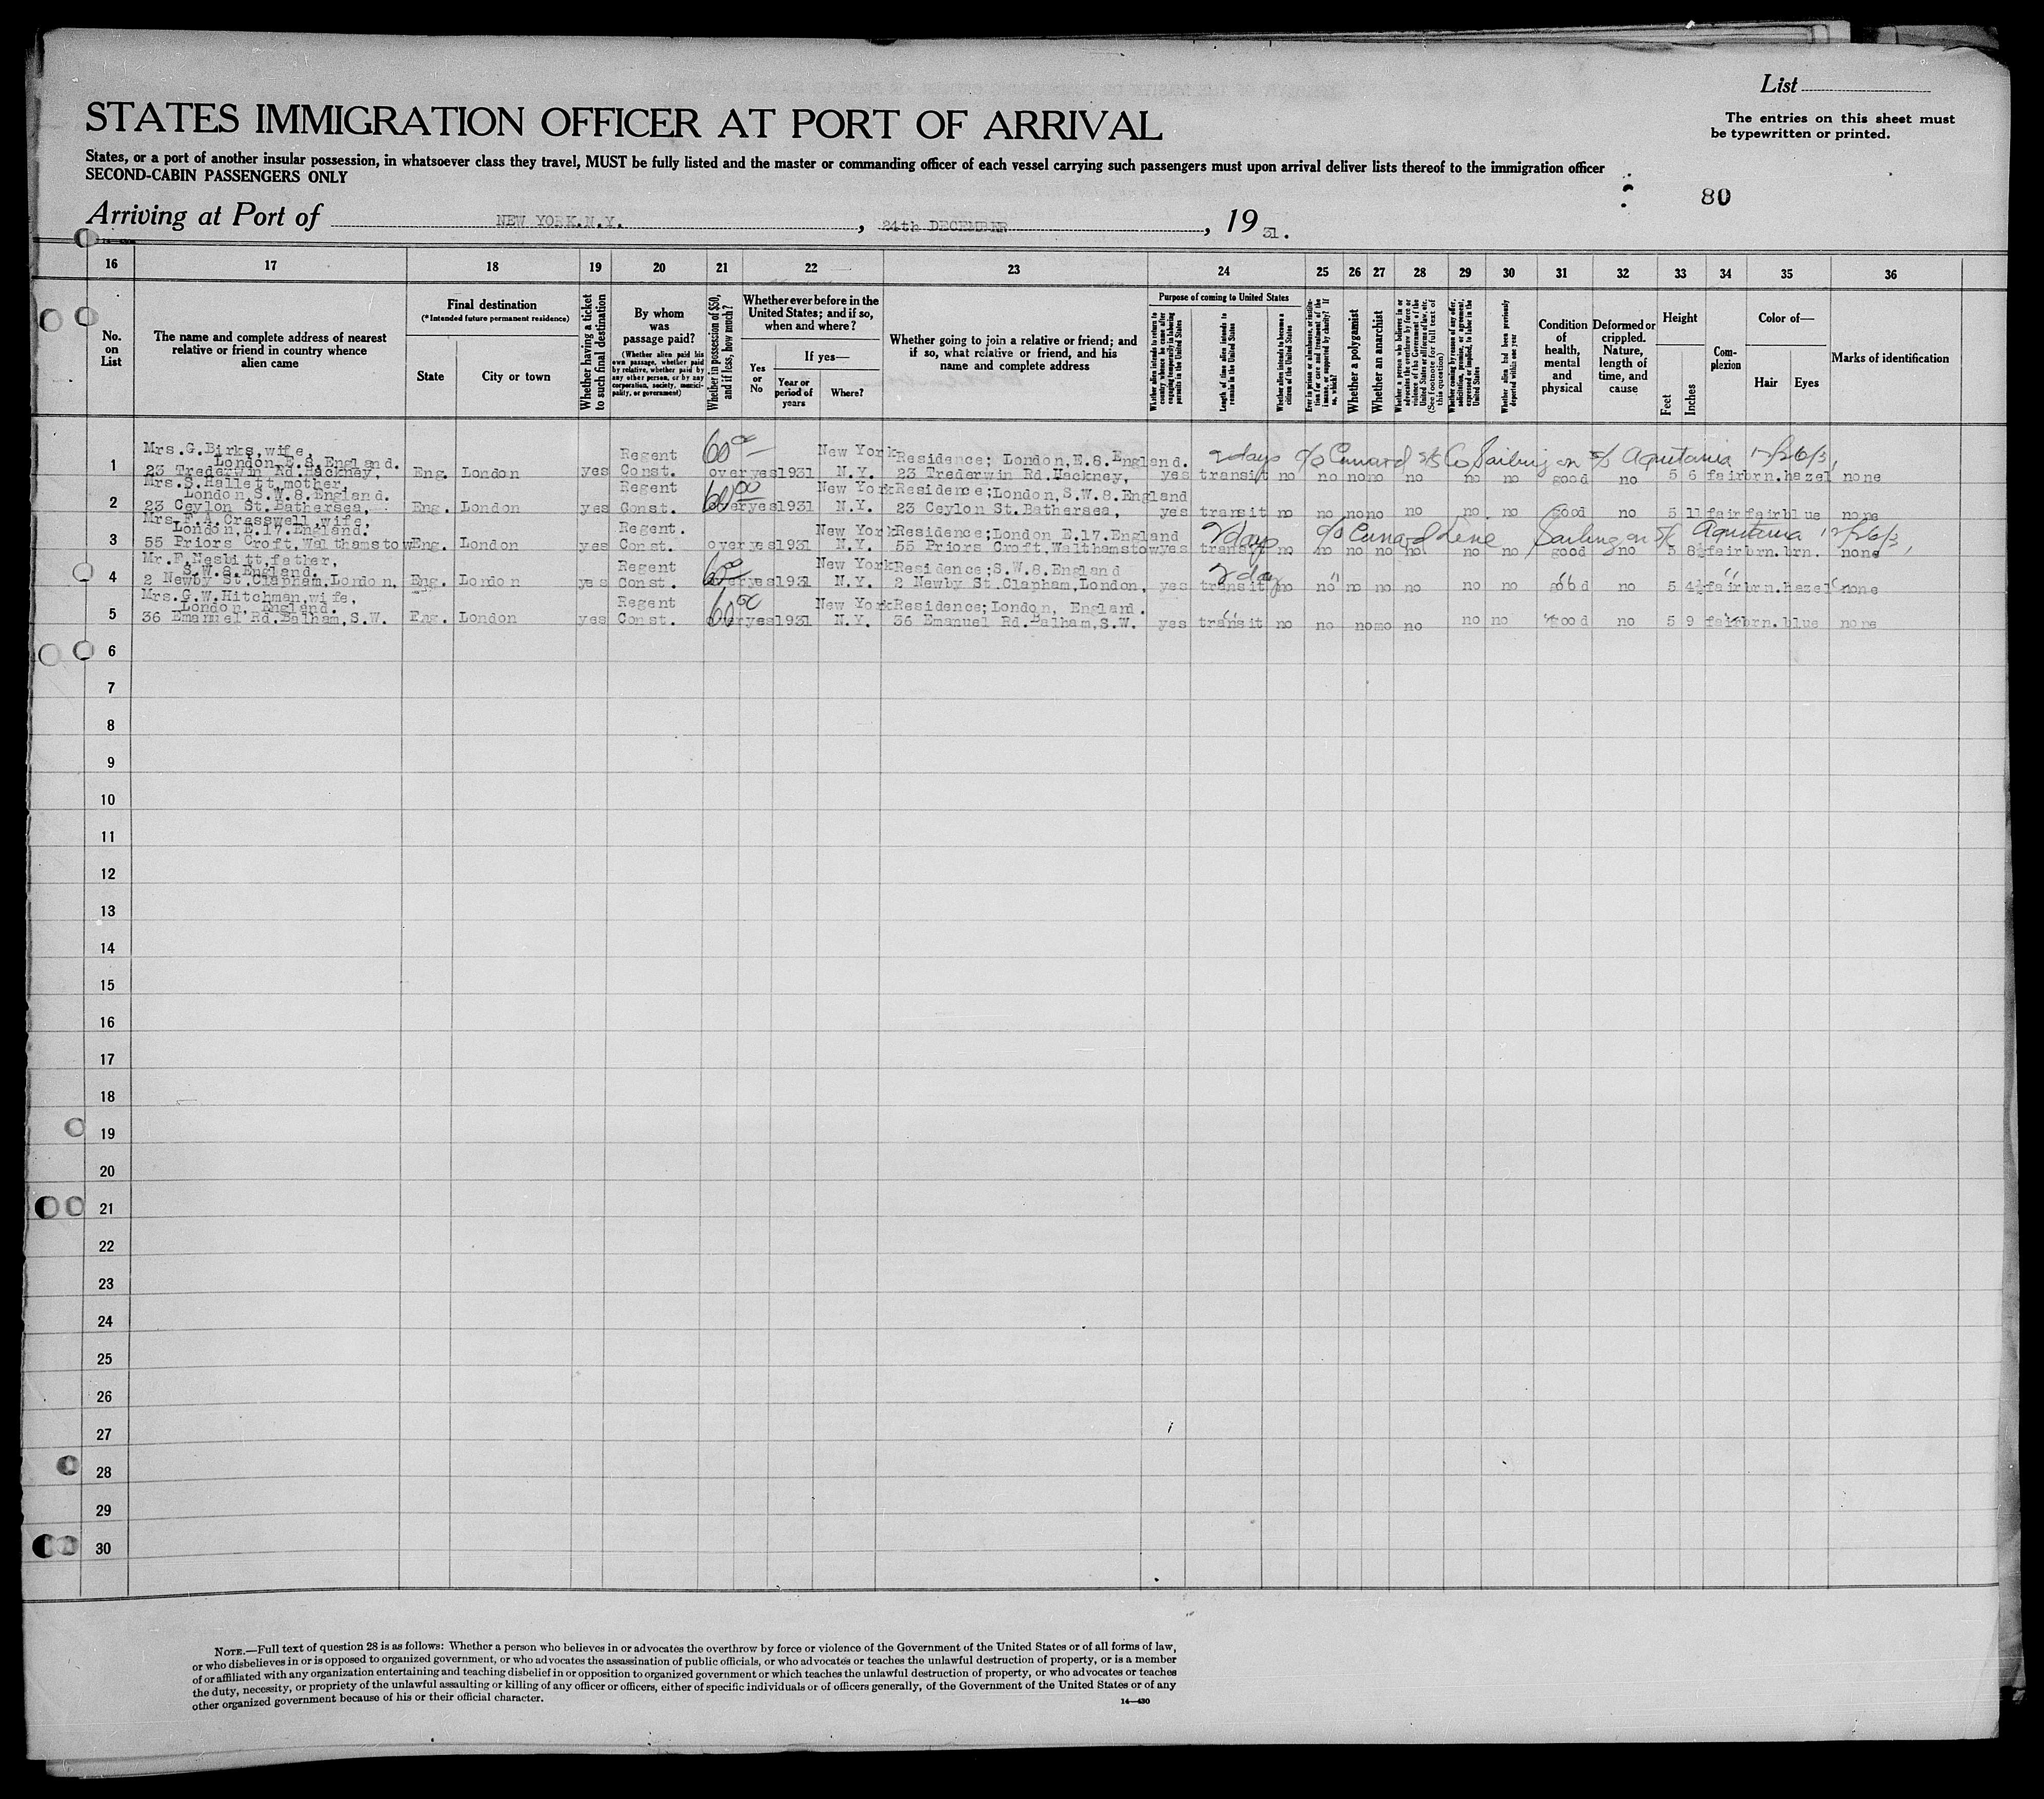 List
The entries on this sheet must
be typewritten or printed.
STATES IMMIGRATION OFFICER AT PORT OF ARRIVAL
States, or a port of another insular possession, in whatsoever class they travel, MUST be fully listed and the master or commanding officer of each vessel carrying such passengers must upon arrival deliver lists thereof to the immigration officer
SECOND-CABIN PASSENGERS ONLY
80
Arriving at Port of NEW YORK.N.Y. , 24th DECEMBER , 19 31.
16 17 18 19 20 21 22 23 24 25 26 27 28 29 30 31 32 33 34 35 36
No. on List
The name and complete address of nearest
relative or friend in country whence
alien came
Final destination
(*Intended future permanent residence)
State
City or town
Whether having a ticket
to such final destination
By whom
was
passage paid?
(Whether alien paid his
own passage, whether paid
by relative, whether paid by
any other person, or by any
corporation, society, munici-
pality, or government)
Whether in possession of $50,
and if less, how much?
Whether ever before in the
United States; and if so,
when and where?
Yes
or
No
If yes—
Year or
period of
years
Where?
Whether going to join a relative or friend; and
if so, what relative or friend, and his
name and complete address
Purpose of coming to United States
Whether alien intends to return to
country whence he came after
engaging temporarily in laboring
pursuits in the United States
Length of time alien intends to
remain in the United States
Whether alien intends to become a
citizen of the United States
Ever in prison or almshouse, or institu-
tion for care and treatment of the
insane, or supported by charity? If
so, which?
Whether a polygamist
Whether an anarchist
Whether a person who believes in or
advocates the overthrow by force or
violence of the Government of the
United States or all forms of law, etc.
(See footnote for full text of
this question)
Whether coming by reason of any offer,
solicitation, promise, or agreement,
expressed or implied, to labor in the
United States
Whether alien had been previously
deported within one year
Condition
of
health,
mental
and
physical
Deformed or
crippled.
Nature,
length of
time, and
cause
Height
Feet
Inches
Com-
plexion
Color of—
Hair
Eyes
Marks of identification
Mrs.G.Birks,wife, Regent 60⁰⁰ New York 2 days c/o Cunard S/S Co Sailing on S/S Aquitania 12/26/31
London,E.8.England. Residence; London,E.8.England.
1 23 Trederwin Rd.Hackney, Eng. London yes Const. over yes 1931 N.Y. 23 Trederwin Rd.Hackney, yes transit no no no no no no no good no 5 6 fair brn. hazel none
Mrs.S.Hallett,mother, Regent 60⁰⁰ New York
London,S.W.8.England. Residence;London,S.W.8.England
2 23 Ceylon St.Bathersea, Eng. London yes Const. over yes 1931 N.Y. 23 Ceylon St.Bathersea, yes transit no no no no no no no good no 5 11 fair fair blue none
Mrs.F.A.Cresswell,wife, Regent. New York 2 days c/o Cunard Line Sailing on S/S Aquitania 12/26/31
London,E.17.England. Residence;London E.17.England
3 55 Priors Croft,Walthamstow Eng. London yes Const. over yes 1931 N.Y. 55 Priors Croft,Walthamstow yes transit no no no no no no no good no 5 8½ fair brn. brn. none
Mr.F.Nesbitt,father, Regent 60⁰⁰ New York 2 day " " " "
S.W.8.England. Residence;S.W.8.England
4 2 Newby St.Clapham,London, Eng. London yes Const. over yes 1931 N.Y. 2 Newby St.Clapham,London, yes transit no no no no no no no good no 5 4½ fair brn. hazel none
Mrs.G.W.Hitchman,wife, Regent 60⁰⁰ New York
London, England. Residence;London, England.
5 36 Emanuel Rd.Balham,S.W. Eng. London yes Const. over yes 1931 N.Y. 36 Emanuel Rd.Balham,S.W. yes transit no no no no no no no good no 5 9 fair brn. blue none
6
7
8
9
10
11
12
13
14
15
16
17
18
19
20
21
22
23
24
25
26
27
28
29
30
NOTE.—Full text of question 28 is as follows: Whether a person who believes in or advocates the overthrow by force or violence of the Government of the United States or of all forms of law,
or who disbelieves in or is opposed to organized government, or who advocates the assassination of public officials, or who advocates or teaches the unlawful destruction of property, or is a member
of or affiliated with any organization entertaining and teaching disbelief in or opposition to organized government or which teaches the unlawful destruction of property, or who advocates or teaches
the duty, necessity, or propriety of the unlawful assaulting or killing of any officer or officers, either of specific individuals or of officers generally, of the Government of the United States or of any
other organized government because of his or their official character.
14—430